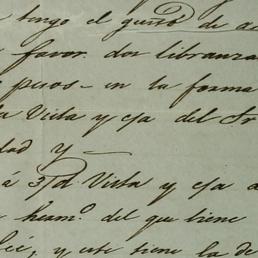 tengo el gusto de
favor dos libranzas
pesos - en la forma
Vista y c/a del Sr
dad y
á 3/d Vista y c/a
hermº del que tiene
y este tiene la de